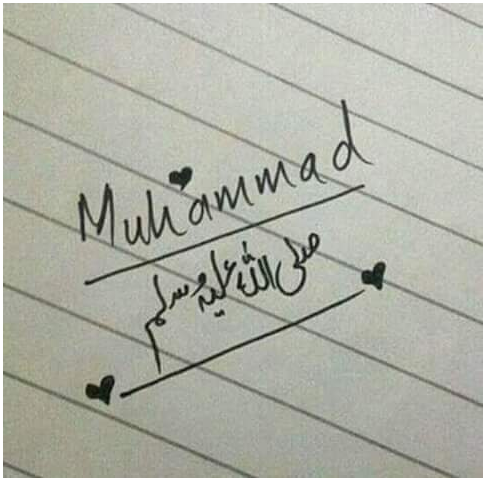 Muhammad
صلى الله عليه وسلم